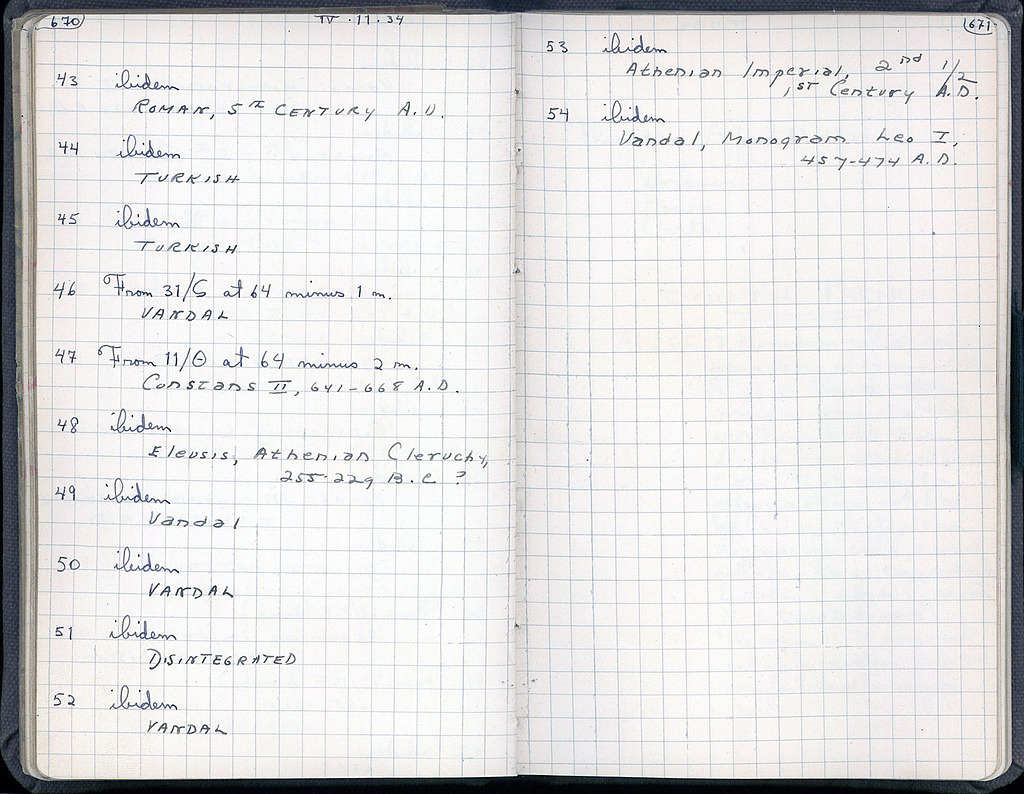 670
IV·11·34
43 ibidem
ROMAN, 5TH CENTURY A.D.
44 ibidem
TURKISH
45 ibidem
TURKISH
46 From 31/ς at 64 minus 1 m.
VANDAL
47 From 11/Θ at 64 minus 2 m.
Constans II, 641-668 A.D.
48 ibidem
Eleusis, Athenian Cleruchy,
255-229 B.C ?
49 ibidem
Vandal
50 ibidem
VANDAL
51 ibidem
DISINTEGRATED
52 ibidem
VANDAL
671
53 ibidem
Athenian Imperial, 2nd 1/2
1st Century A.D.
54 ibidem
Vandal, Monogram Leo I,
457-474 A.D.